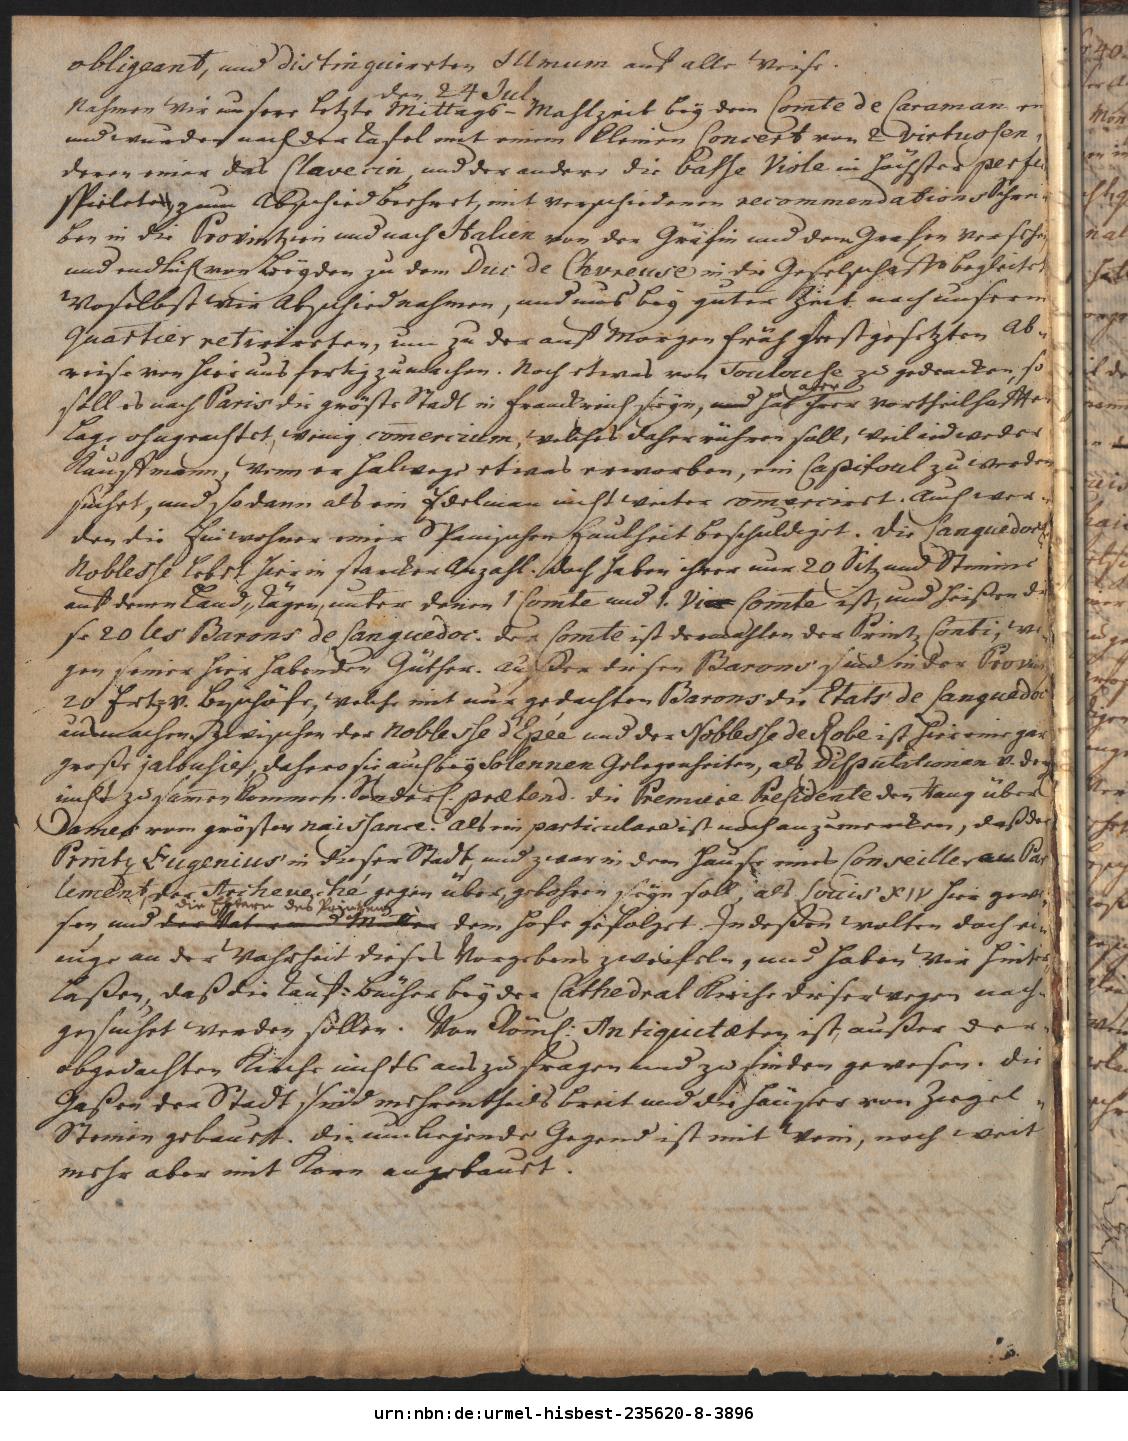 obligeant, und distinguirten Illmum auf alle Weise.
den 24 Jul.
Nahmen wir unsere letzte Mittags-Mahlzeit bey dem Comte de Caraman ein
und wurden nach der Tafel mit einem kleinen Concert von 2 Virtuosen,
deren einer das Clavecin, und der andere die Basse Viole in höchster perfe-
spieleten, zum Abschied beehret, mit verschiedenen recommendations Schrei-
ben in die Provintzien und nach Italien von der Gräfin und dem Grafen versehen
und endlich von Beyden zu dem Duc de Chvreuse in die Geselschafft begleitet
woselbst wir Abschied nahmen, und uns bey guter Zeit nach unserm
Quartier retirirten, um zu der auf Morgen früh festgesetzten Ab-
reise von hier uns fertig zu machen. Noch etwas von Toulouse zu gedencken, so
soll es nach Paris die größte Stadt in Franckreich seyn, hat aber ihrer vortheilhafften
Lage ohngeachtet, wenig commercium, welches daher rühren soll, weil iedweder
Kauffmann, wenn er halwege etwas erworben, ein Capitoul zu werden
suchet, und sodann als ein Edelman nicht weiter commerciret. Auch wer-
den die Einwohner einer Spanischen Faulheit beschuldiget. Die Languedoc
Noblesse lebet hier in starcker Anzahl. Doch haben ihrer nur 20 Sitz und Stimme
auf denen Land-tägen, unter denen 1 Comte und 1. Vi Comte ist, und heißen die-
se 20 les Barons de Languedoc. Der Comte ist dermahlen der Printz Conti, we-
gen seiner hier habenden Güther. Außer diesen Barons sind in der Provin
20 Ertz v. Byschöfe, welche mit nur gedachten Barons die Etats de Languedoc
ausmachen. Zwischen der Noblesse d'Epée und der Noblesse de Robe ist hier eine gar
große jalousie, dahero sie auch bey solennen Gelegenheiten, als Disputationen v. derg
nicht zusammen kommen. Sonderl. prætend. die Premiere Presidente den Rang über
Dames vom grösten naissance. Als ein particulare ist noch anzumercken, daß der
Printz Eugenius in dieser Stadt, und zwar in dem Hause eines Conseiller au Par
lement, der Archeveché gegen über, gebohren seyn soll, als Louis XIV hier gewe-
die Eltern des Printzen
sen, und der Vater und Mutter dem Hofe gefolget. Indeßen wolten doch ei-
nige an der Wahrheit dieses Vorgebens zweifeln, und haben wir hinter-
laßen, daß die Tauf-Bücher bey der Cathedral Kirche dieserwegen nach-
gesuchet werden sollen. Von Röml. Antiquitæten ist, außer der
obgedachten Kirche nichts auszufragen und zu finden gewesen. Die
Gaßen der Stadt sind mehrentheils breit und die Häuser von Ziegel-
Steinen gebauet. Die umliegende Gegend ist mit Wein, noch weit
mehr aber mit Korn angebauet.
urn:nbn:de:urmel-hisbest-235620-8-3896